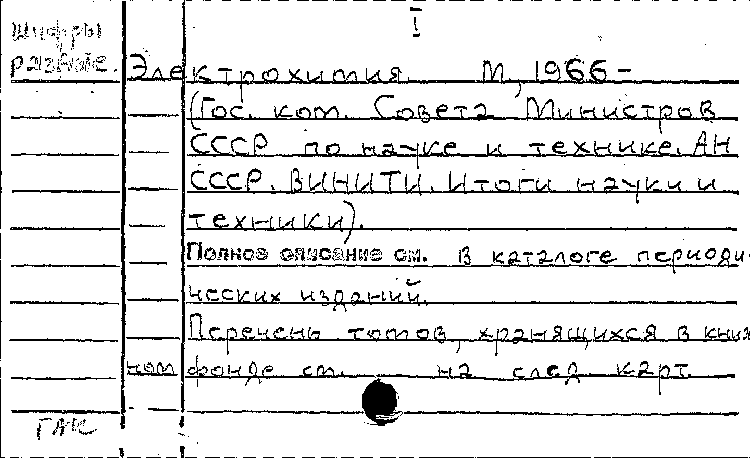 I
Шифры
разные.
Электрохимия. М, 1966 -
(Гос. ком. Совета Министров
СССР по науке и технике. АН
СССР. ВИНИТИ. Итоги науки и
техники).
Полное описание см. в каталоге периоди-
ческих изданий.
Перечень томов, хранящихся в книж
ном фонде см. на след карт.
ГАК